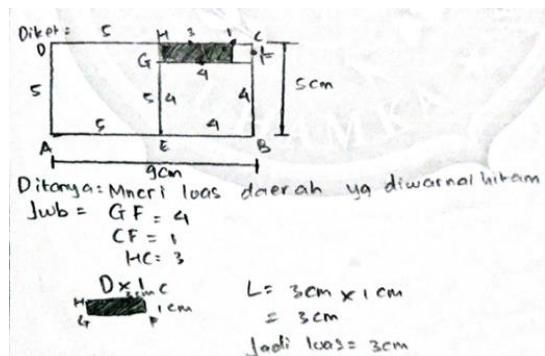 Diket:
D 5 H 3 1 C
G 4 F
5 5 4 4 5cm
5 4
A E B
9cm
Ditanya: Mncri luas daerah yg diwarnai hitam
Jwb = GF = 4
CF = 1
HC = 3
D x L
H 3cm C
1cm
G F
L = 3cm x 1cm
= 3cm
Jadi luas = 3cm